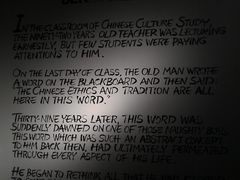 IN THE CLASSROOM OF CHINESE CULTURE STUDY,
THE NINETY-TWO YEARS OLD TEACHER WAS LECTURING
EARNESTLY, BUT FEW STUDENTS WERE PAYING
ATTENTIONS TO HIM.
ON THE LAST DAY OF CLASS, THE OLD MAN WROTE
A WORD ON THE BLACKBOARD AND THEN SAID:
"THE CHINESE ETHICS AND TRADITION ARE ALL
HERE IN THIS WORD."
THIRTY-NINE YEARS LATER, THIS WORD WAS
SUDDENLY DAWNED ON ONE OF THOSE NAUGHTY BOYS.
THIS WORD WHICH WAS SUCH AN ABSTRACT CONCEPT
TO HIM BACK THEN, HAD ULTIMATELY PERMEATED
THROUGH EVERY ASPECT OF HIS LIFE.
HE BEGAN TO RETHINK ALL THAT